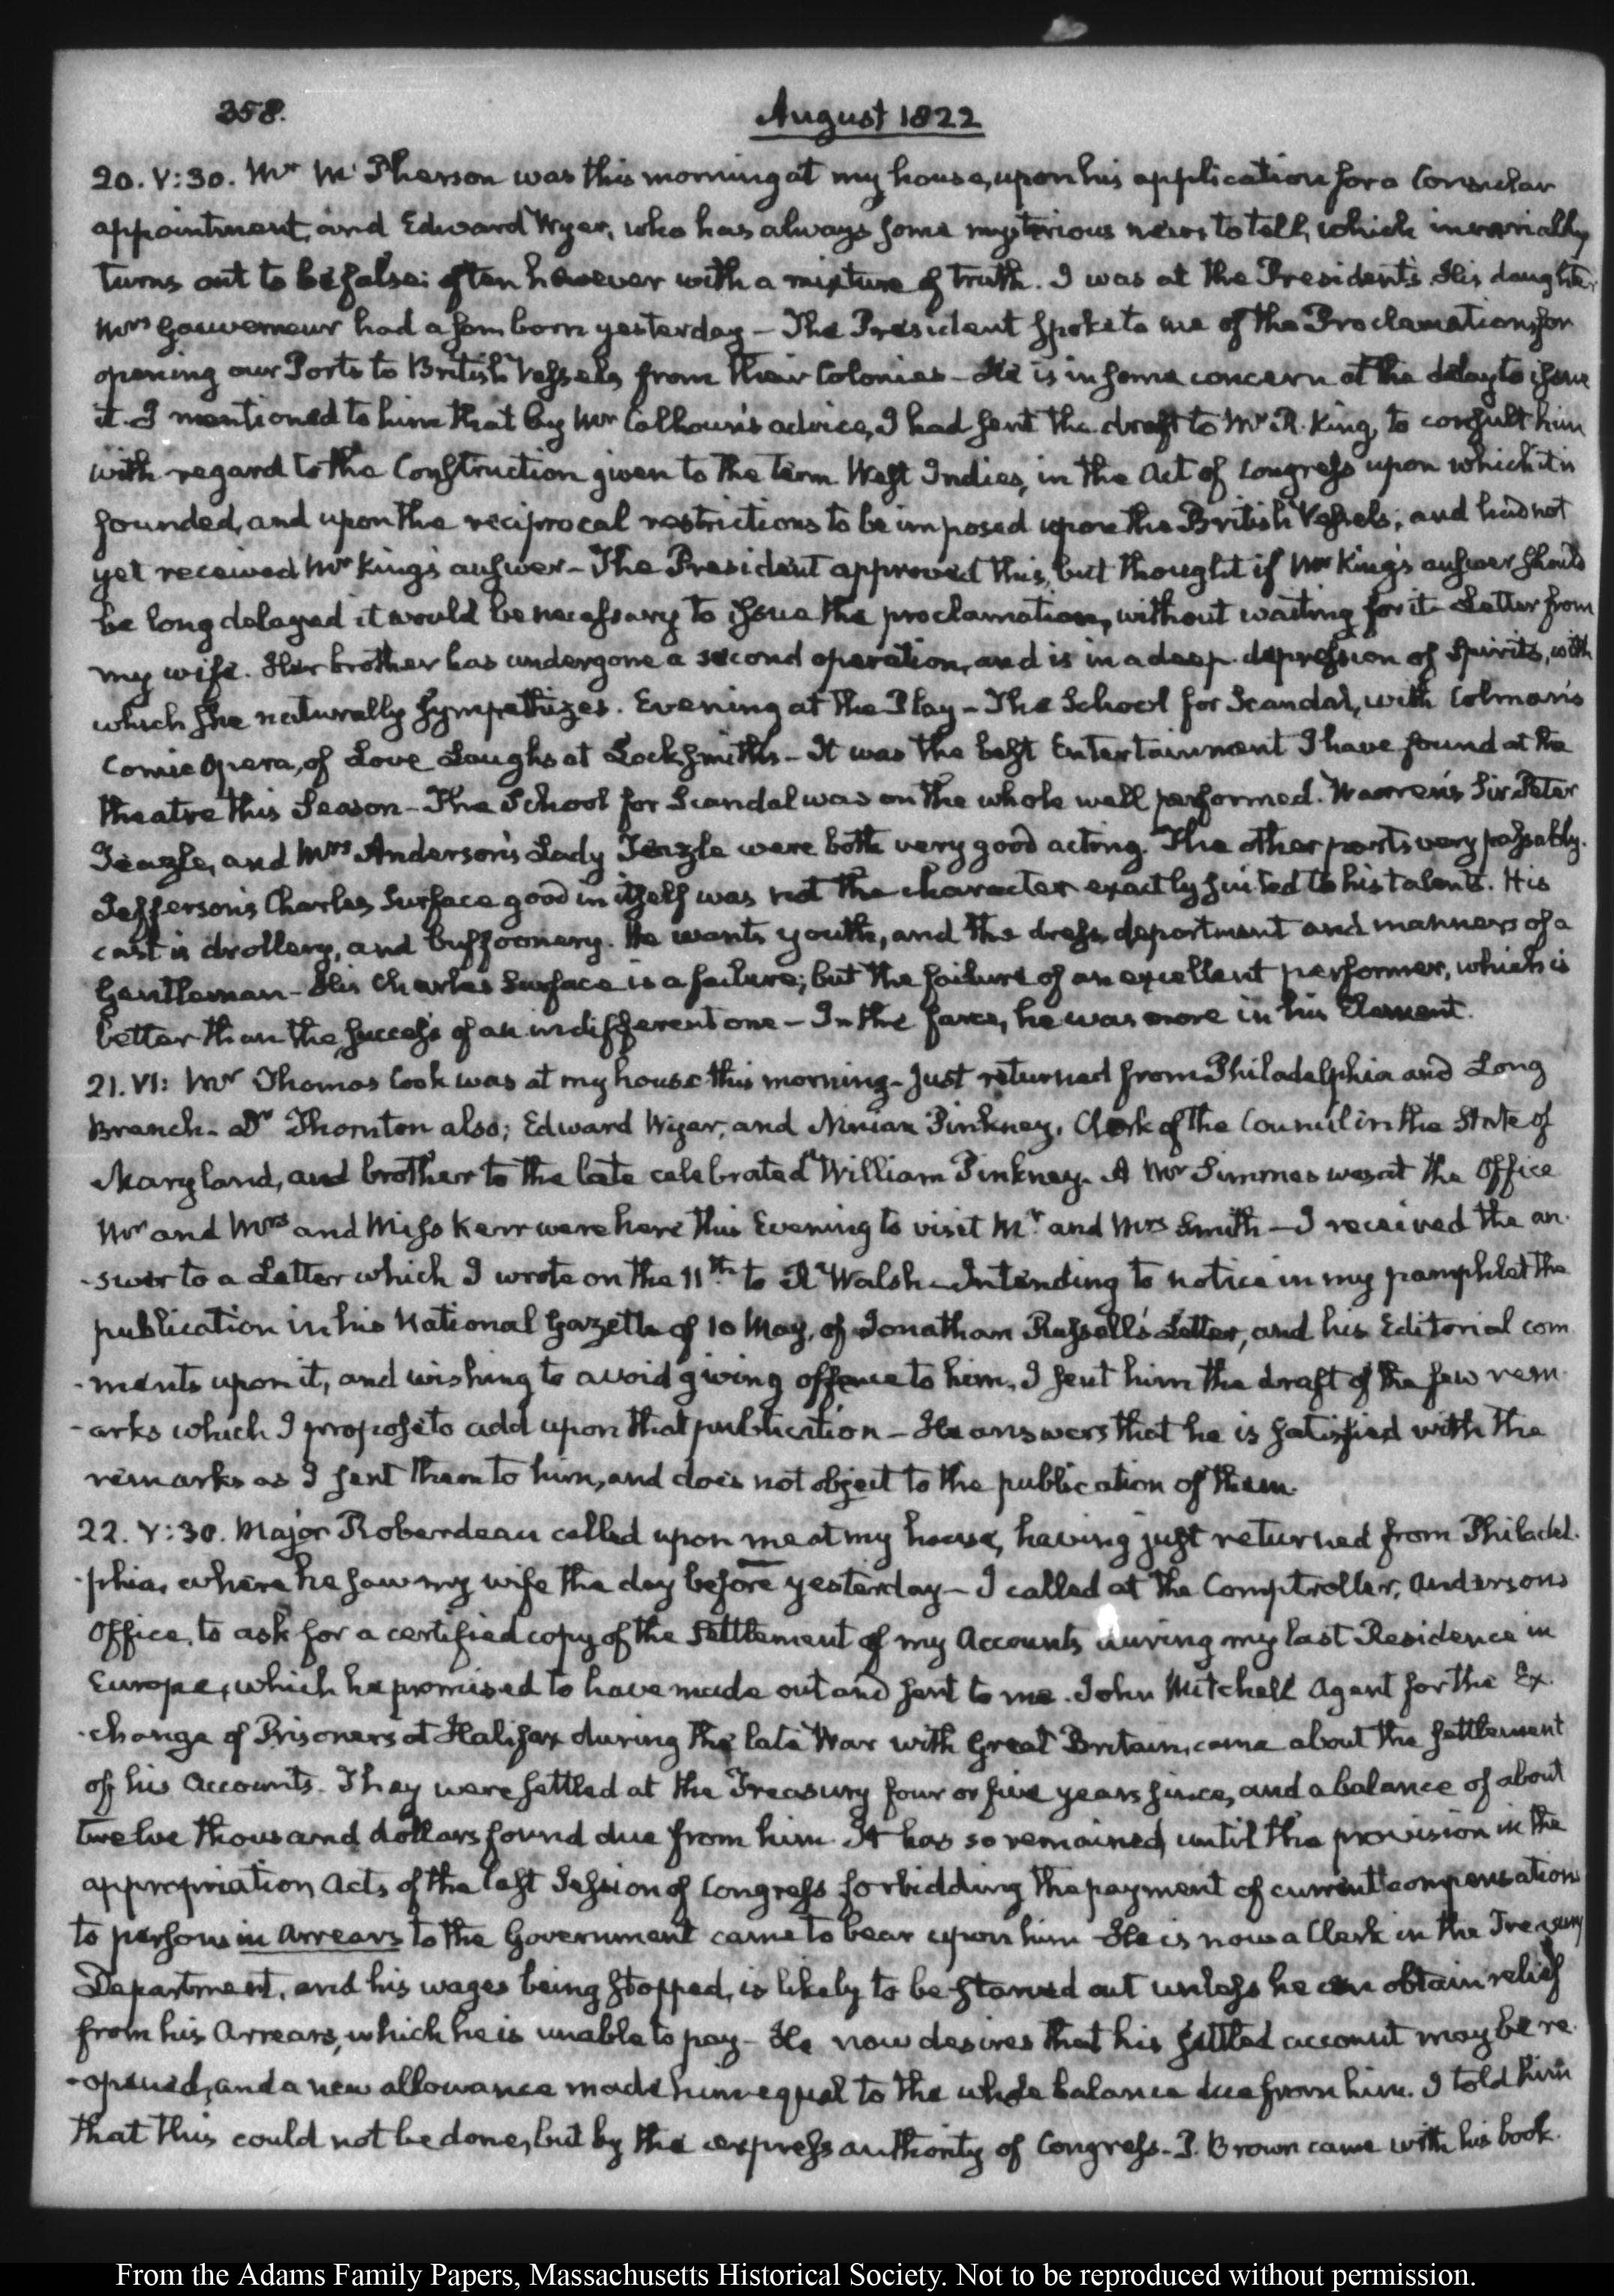 358.
August 1822
20. V:30. Mr McPherson was this morning at my house, upon his application for a Consular
appointment, and Edward Wyer, who has always some mysterious news to tell, which invariably
turns out to be false: often however with a mixture of truth. I was at the President's. His daughter
Mrs Gouverneur had a son born yesterday – The President spoke to me of the Proclamation, for
opening our Ports to British Vessels, from their Colonies – He is in some concern at the delay to issue
it. I mentioned to him that by Mr Calhoun's advice, I had sent the draft to Mr R. King, to consult him
with regard to the Construction given to the term West Indies, in the Act of Congress upon which it is
founded, and upon the reciprocal restrictions to be imposed upon the British Vessels; and had not
yet received Mr King's answer – The President approved this, but thought if Mr King's answer should
be long delayed it would be necessary to issue the proclamation, without waiting for it – Letter from
my wife. Her brother has undergone a second operation, and is in a deep depression of Spirits, with
which she naturally sympathizes. Evening at the Play – The School for Scandal, with Colman's
Comic Opera, of Love Laughs at Locksmiths – It was the best Entertainment I have found at the
theatre this Season – The School for Scandal was on the whole well performed. Warren's Sir Peter
Teazle, and Mrs Anderson's Lady Teazle were both very good acting. The other parts very passably.
Jefferson's Charles Surface good in itself was not the character exactly suited to his talents. His
cast is drollery, and buffoonery. He wants youth, and the dress, deportment and manners of a
Gentleman – His Charles Surface is a failure; but the failure of an excellent performer, which is
better than the success of an indifferent one – In the farce, he was more in his Element.
21. VI: Mr Thomas Cook was at my house this morning – just returned from Philadelphia and Long
Branch – Dr Thornton also; Edward Wyer, and Ninian Pinkney, Clerk of the Council in the State of
Maryland, and brother to the late celebrated William Pinkney. A Mr Simmes was at the Office
Mr and Mrs and Miss Kerr were here this Evening to visit Mr and Mrs Smith – I received the an-
-swer to a Letter which I wrote on the 11th to R Walsh – Intending to notice in my pamphlet the
publication in his National Gazette of 10 May, of Jonathan Russell's Letter, and his Editorial com
-ments upon it, and wishing to avoid giving offence to him, I sent him the draft of the few rem-
-arks which I propose to add upon that publication – He answers that he is satisfied with the
remarks as I sent them to him, and does not object to the publication of them.
22. V:30. Major Roberdeau called upon me at my house, having just returned from Philadel-
-phia, where he saw my wife the day before yesterday – I called at the Comptroller, Anderson's
Office, to ask for a certified copy of the settlement of my Accounts during my last Residence in
Europe, which he promised to have made out and sent to me. John Mitchell Agent for the Ex-
-change of Prisoners at Halifax during the late War with Great Britain, came about the settlement
of his Accounts. They were settled at the Treasury four or five years since, and a balance of about
twelve thousand dollars found due from him. It has so remained, until the provision in the
appropriation Acts of the last Session of Congress forbidding the payment of current compensations
to persons in arrears to the Government came to bear upon him – He is now a Clerk in the Treasury
Department, and his wages being stopped, is likely to be starved out unless he can obtain relief
from his Arrears, which he is unable to pay – He now desires that his settled account may be re-
-opened, and a new allowance made him equal to the whole balance due from him. I told him
that this could not be done, but by the express authority of Congress – P. Brown came with his book.
From the Adams Family Papers, Massachusetts Historical Society. Not to be reproduced without permission.